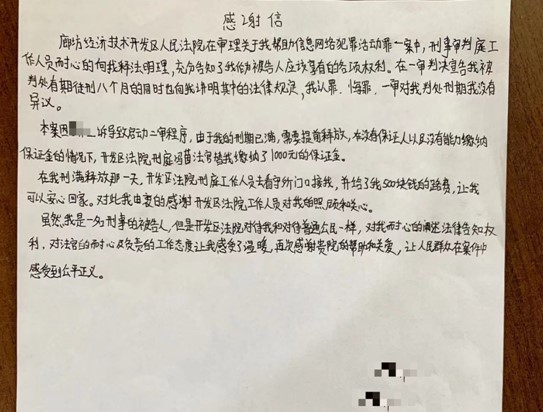 感谢信
廊坊经济技术开发区人民法院在审理关于我帮助信息网络犯罪活动罪一案中，刑事审判庭工
作人员耐心的向我释法明理，充分告知了我作为被告人应该享有的各项权利。在一审判决宣告我被
判处有期徒刑八个月的同时也向我讲明其中的法律规定，我认罪、悔罪，一审对我判处刑期我没有
异议。
本案因 诉导致启动二审程序，由于我的刑期已满，需要提前释放，在没有保证人以及没有能力缴纳
保证金的情况下，开发区法院刑庭 法官替我缴纳了1000元的保证金。
在我刑满释放那一天，开发区法院刑庭工作人员去看守所门口接我，并给了我500块钱的路费，让我
可以安心回家。对此我由衷的感谢开发区法院工作人员对我的照顾和关心。
虽然我是一名刑事的被告人，但是开发区法院对待我和对待普通公民一样，对我耐心的阐述法律告知权
利，对法官的耐心及负责的工作态度让我感受了温暖，再次感谢贵院的帮助和关爱，让人民群众在案件中
感受到公平正义。